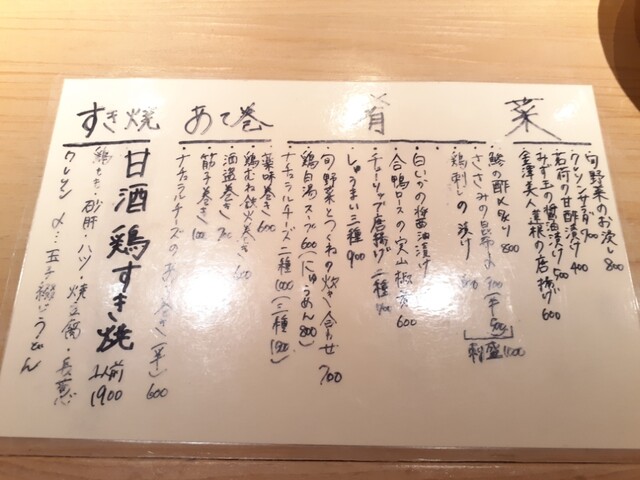 菜
旬野菜のお浸し 800
クレソンサラダ 700
茗荷の甘酢漬け 400
みず玉の醤油漬け 500
会津美人蓮根の唐揚げ 600
肴
鯵の酢〆炙り 800
ささみの昆布〆 700(半500)
鶏刺しの漬け
刺盛
白いかの醤油漬け
合鴨ロースの実山椒煮 600
チューリップ唐揚げ 二種
しゅうまい 三種 900
旬野菜とつくねの炊き合わせ 700
鶏白湯スープ 600(にゅうめん 800)
ナチュラルチーズ 二種
あて巻
薬味巻き 600
鶏むね鉄火巻き 600
酒盗巻き
筋子巻き
ナチュラルチーズのあて巻き(半) 600
すき焼
甘酒鶏すき焼 1人前 1900
鶏もも・砂肝・ハツ・焼豆腐・長葱
クレソン 〆…玉子綴じうどん